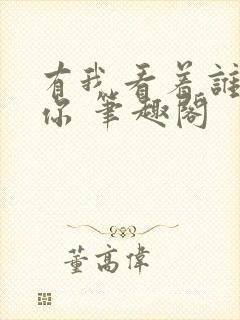 有我看着誰
你 筆趣閣
董高偉